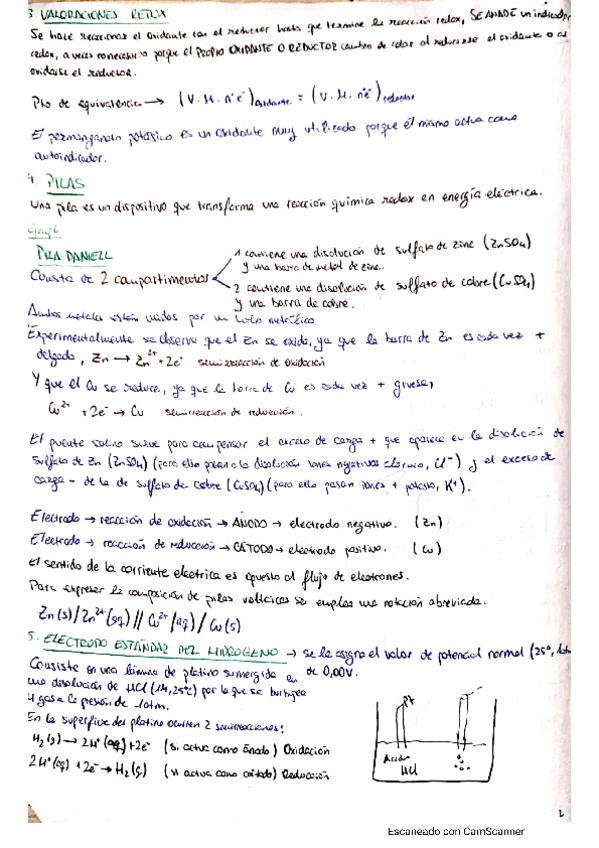 3 VALORACIONES REDOX
Se hace reaccionar el oxidante con el reductor hasta que termine la reacción redox, SE AÑADE un indicador
redox, a veces no necesario porque el PROPIO OXIDANTE O REDUCTOR cambia de color al reducirse el oxidante o al
oxidarse el reductor.
Pto de equivalencia → (V. M. nº e⁻) oxidante = (V. M. nº e⁻) reductor
El permanganato potásico es un oxidante muy utilizado porque él mismo actúa como
autoindicador.
4 PILAS
Una pila es un dispositivo que transforma una reacción química redox en energía eléctrica.
Ejempl
PILA DANIELL
1 contiene una disolución de sulfato de zinc (ZnSO4)
y una barra de metal de zinc.
Consta de 2 compartimentos
2 contiene una disolución de sulfato de cobre (CuSO4)
y una barra de cobre.
Ambos metales están unidos por un hilo metálico
Experimentalmente se observa que el Zn se oxida, ya que la barra de Zn es cada vez +
delgada, Zn → Zn²⁺ + 2e⁻ semirreacción de oxidación
Y que el Cu se reduce, ya que la barra de Cu es cada vez + gruesa,
Cu²⁺ + 2e⁻ → Cu semirreacción de reducción.
El puente salino sirve para compensar el exceso de carga + que aparece en la disolución de
sulfato de Zn (ZnSO4) (para ello pasan a la disolución iones negativos cloruro, Cl⁻) y el exceso de
carga - de la de sulfato de cobre (CuSO4) (para ello pasan iones + potasio, K⁺).
Electrodo → reacción de oxidación → ÁNODO → electrodo negativo. (Zn)
Electrodo → reacción de reducción → CÁTODO → electrodo positivo. (Cu)
El sentido de la corriente eléctrica es opuesto al flujo de electrones.
Para expresar la composición de pilas voltaicas se emplea una notación abreviada.
Zn(s) / Zn²⁺(aq) // Cu²⁺(aq) / Cu(s)
5. ELECTRODO ESTÁNDAR DEL HIDRÓGENO → se le asigna el valor de potencial normal (25º, 1atm
de 0,00V.
Consiste en una lámina de platino sumergida en
una disolución de HCl (1M, 25ºC) por la que se burbujea
H gas a la presión de 1atm.
En la superficie del platino ocurren 2 semirreacciones:
H2(g) → 2H⁺(aq) + 2e⁻ (si actúa como ánodo) Oxidación
2H⁺(aq) + 2e⁻ → H2(g) (si actúa como cátodo) Reducción
Pt
HCl
2
Escaneado con CamScanner